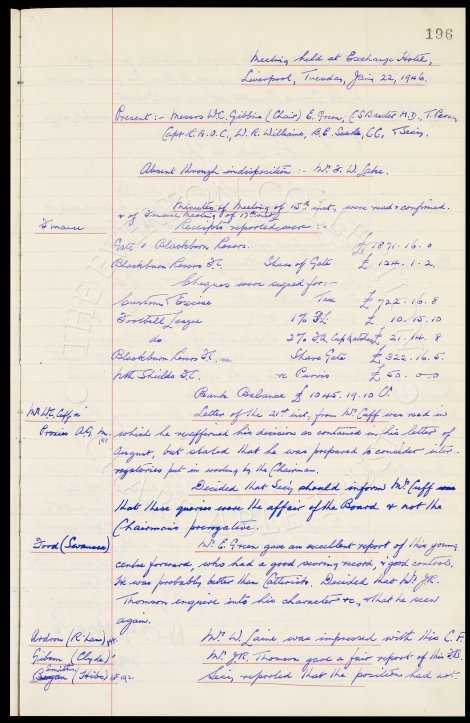 196
Meeting held at Exchange Hotel,
Liverpool, Tuesday, Jan 22, 1946.
Present :- Messrs W.C. Gibbins (Chair) E. Green, C.S. Baxter M.D., T. Percy,
Capt. C. A. D. C., W. R. Williams, B.E. Searle, CC, & Secy.
Absent through indisposition :- Mr. F. W. Lake.
Minutes of Meeting of 15th inst., were read & confirmed.
& of Finance Meeting of 17th inst
Finance Receipts reported were :-
Gate v Blackburn Rovers. £ 1871. 16. 0
Blackburn Rovers F.C. Share of Gate £ 124. 1. 2.
Cheques were signed for :-
Customs & Excise Tax £ 722. 16. 8
Football League 1% F.L. £ 10. 15. 10
do 2% F.A. Cup £ 21. 14. 8
Blackburn Rovers F.C. - Share Gate £ 322. 16. 5.
Nth Shields F.C. re Purvis £ 50. 0. 0
Bank Balance £ 1045. 19. 10 Cr
Mr. W.C. Cuff re Letter of the 21st inst, from Mr. Cuff was read in
Proxies A.G. M. which he reaffirmed his decision as contained in his letter of
August, but stated that he was prepared to consider inter-
rogatories put in writing by the Chairman.
Decided that Secy should inform Mr. Cuff was
that these queries were the affair of the Board & not the
Chairman's prerogative.
Ford (Swansea) Mr. E. Green gave an excellent report of this young
centre forward, who had a good scoring record, & good control.
He was probably better than Catterick. Decided that Mr. J.R.
Thomson enquire into his character &c., & that he seen
again.
Mr. W. Laine was impressed with this C.F.
Gibson (Clyde) Mr. J.R. Thomson gave a fair report of this F.B.
Smith (Hibs) Secy reported that the position had not